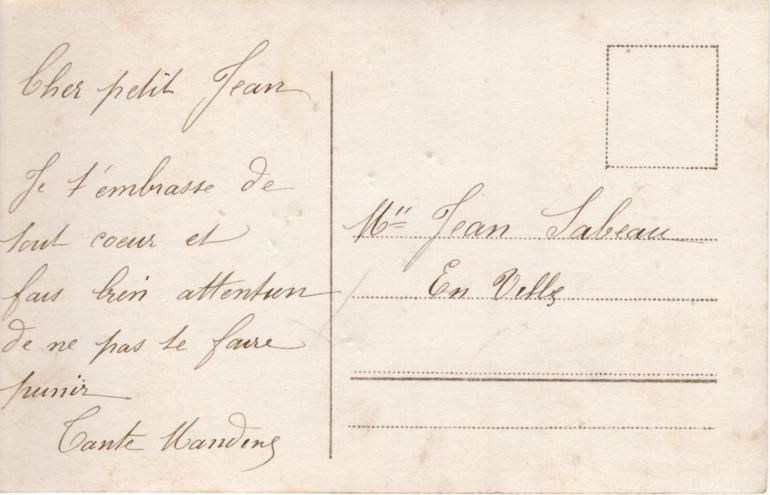 Cher petit Jean
Je t'embrasse de
tout coeur et
fais bien attention
de ne pas te faire
punir
Tante
Mr Jean Sabeau
En Ville